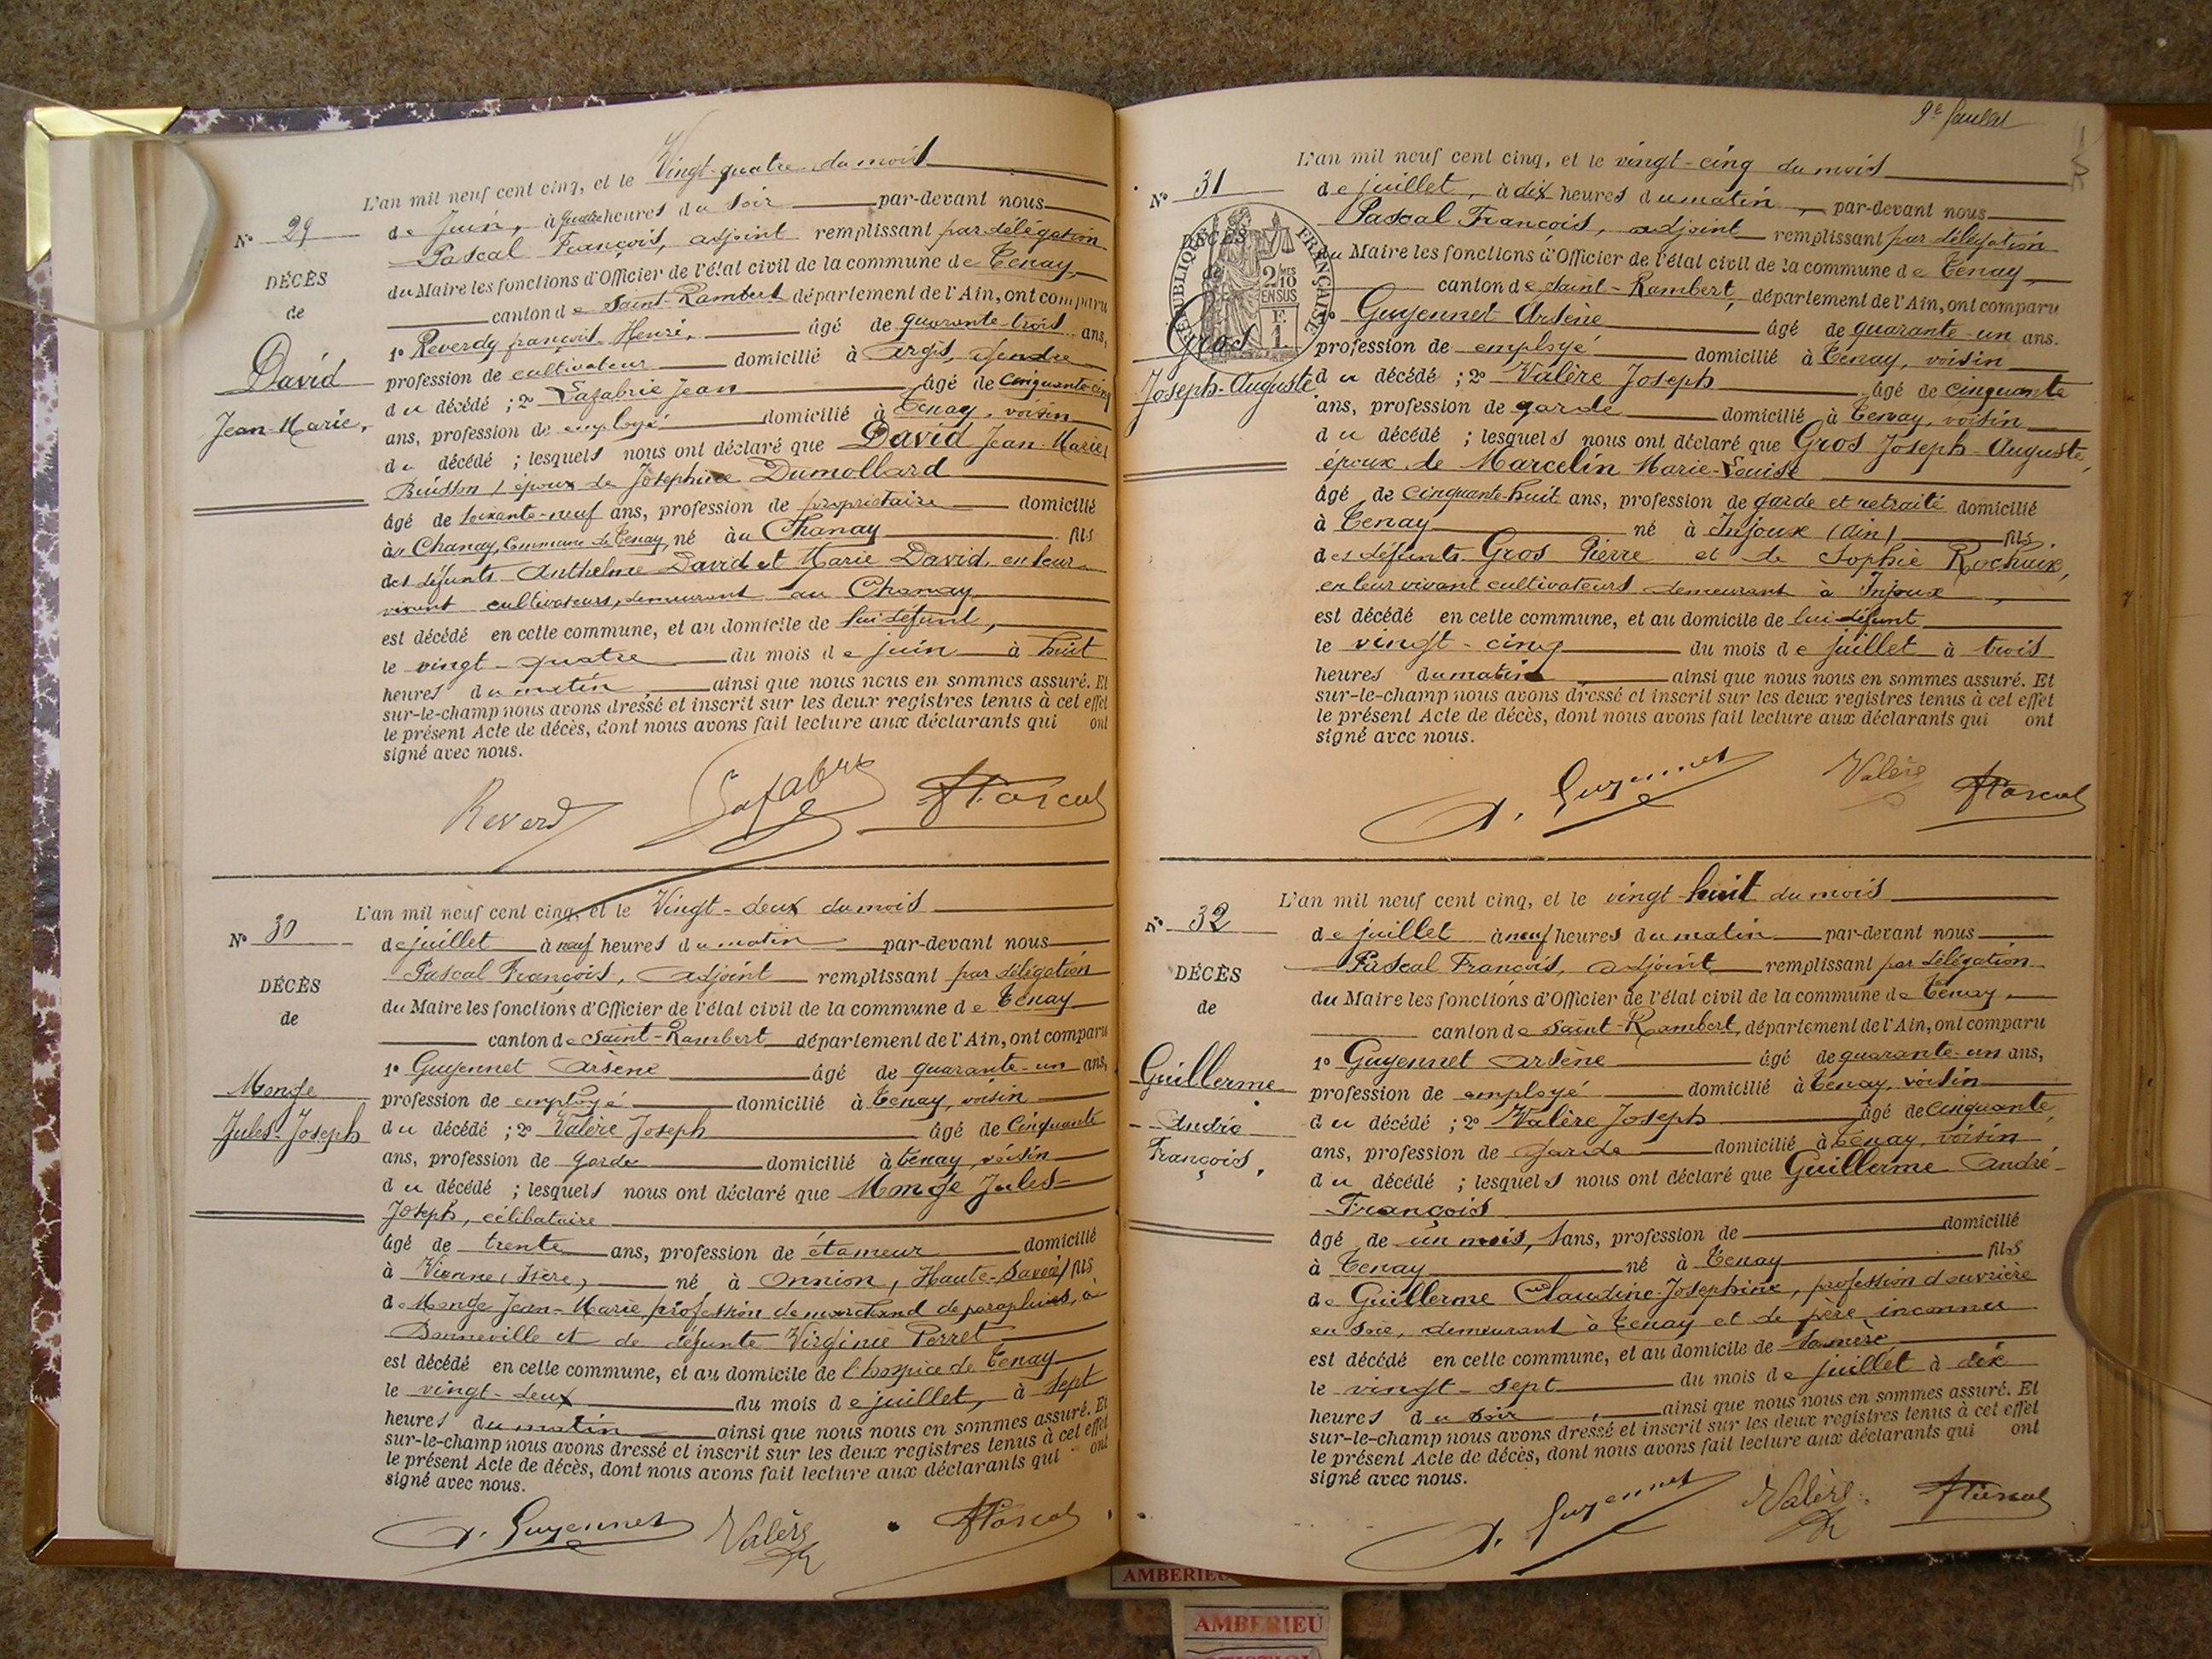 L'an mil neuf cent cinq, et le Vingt-quatre du mois
N° 29
de Juin, à quatre heures du soir par-devant nous
Pascal François, adjoint remplissant par délégation
DÉCÈS
du Maire les fonctions d'Officier de l'état civil de la commune de Tenay,
de
canton de Saint-Rambert département de l'Ain, ont comparu
1° Reverdy françois Henri, âgé de quarante-trois ans,
David
profession de cultivateur domicilié à Argis, gendre
du décédé ; 2° Lafabrie Jean âgé de Cinquante-cinq
Jean-Marie,
ans, profession de employé domicilié à Tenay, voisin
du décédé ; lesquels nous ont déclaré que David Jean-Marie,
époux de Josephine Dumollard
âgé de soixante-neuf ans, profession de propriétaire domicilié
au Chanay, Commune de Tenay, né au Chanay fils
des défunts Anthelme David et Marie David, en leur
vivant cultivateurs, demeurant au Chanay
est décédé en cette commune, et au domicile de lui défunt,
le vingt-quatre du mois de juin à huit
heures du matin, ainsi que nous nous en sommes assuré. Et
sur-le-champ nous avons dressé et inscrit sur les deux registres tenus à cet effet
le présent Acte de décès, dont nous avons fait lecture aux déclarants qui ont
signé avec nous.
Reverdy Lafabrie Pascal
L'an mil neuf cent cinq, et le Vingt-deux du mois
N° 30
de juillet à neuf heures du matin par-devant nous
Pascal François, adjoint remplissant par délégation
DÉCÈS
du Maire les fonctions d'Officier de l'état civil de la commune de Tenay
de
canton de Saint-Rambert département de l'Ain, ont comparu
1° Guyennet Arsène âgé de quarante-un ans,
Monge
profession de employé domicilié à Tenay, voisin
Jules-Joseph
du décédé ; 2° Valère Joseph âgé de Cinquante
ans, profession de garde domicilié à Tenay, voisin
du décédé ; lesquels nous ont déclaré que Monge Jules-
Joseph, célibataire
âgé de trente ans, profession de étameur domicilié
à Vienne (Isère), né à Onnion, (Haute-Savoie) fils
de Monge Jean-Marie, profession de marchand de parapluies, à
Bonneville et de défunte Virginie Perret
est décédé en cette commune, et au domicile de l'hospice de Tenay
le vingt-deux du mois de juillet, à sept
heures du matin ainsi que nous nous en sommes assuré. Et
sur-le-champ nous avons dressé et inscrit sur les deux registres tenus à cet effet
le présent Acte de décès, dont nous avons fait lecture aux déclarants qui ont
signé avec nous.
A. Guyennet Valère Pascal
9e feuillet
L'an mil neuf cent cinq, et le vingt-cinq du mois
N° 31
de juillet, à dix heures du matin, par-devant nous
Pascal François, adjoint remplissant par délégation
DÉCÈS
de
RÉPUBLIQUE FRANÇAISE
2/10 EN SUS
F. 1
du Maire les fonctions d'Officier de l'état civil de la commune de Tenay,
canton de Saint-Rambert, département de l'Ain, ont comparu
1° Guyennet Arsène âgé de quarante-un ans.
Gros
profession de employé domicilié à Tenay, voisin
Joseph-Auguste
du décédé ; 2° Valère Joseph âgé de cinquante
ans, profession de garde domicilié à Tenay, voisin
du décédé ; lesquels nous ont déclaré que Gros Joseph-Auguste,
époux de Marcelin Marie-Louise
âgé de cinquante-huit ans, profession de garde et retraité domicilié
à Tenay né à Injoux (Ain) fils
des défunts Gros Pierre et de Sophie Rochaix,
en leur vivant cultivateurs demeurant à Injoux,
est décédé en cette commune, et au domicile de lui défunt
le vingt-cinq du mois de juillet à trois
heures du matin ainsi que nous nous en sommes assuré. Et
sur-le-champ nous avons dressé et inscrit sur les deux registres tenus à cet effet
le présent Acte de décès, dont nous avons fait lecture aux déclarants qui ont
signé avec nous.
A. Guyennet Valère Pascal
L'an mil neuf cent cinq, et le vingt-huit du mois
N° 32
de juillet à neuf heures du matin par-devant nous
Pascal François, adjoint remplissant par délégation
DÉCÈS
du Maire les fonctions d'Officier de l'état civil de la commune de Tenay,
de
canton de Saint-Rambert, département de l'Ain, ont comparu
1° Guyennet Arsène âgé de quarante-un ans,
Guillerme
profession de employé domicilié à Tenay, voisin
André
du décédé ; 2° Valère Joseph âgé de cinquante,
François,
ans, profession de garde domicilié à Tenay, voisin
du décédé ; lesquels nous ont déclaré que Guillerme André-
François
âgé de un mois, sans, profession de domicilié
à Tenay né à Tenay fils
de Guillerme Claudine-Josephine, profession d'ouvrière
en soie, demeurant à Tenay et de père inconnu
est décédé en cette commune, et au domicile de sa mère,
le vingt-sept du mois de juillet à dix
heures du soir, ainsi que nous nous en sommes assuré. Et
sur-le-champ nous avons dressé et inscrit sur les deux registres tenus à cet effet
le présent Acte de décès, dont nous avons fait lecture aux déclarants qui ont
signé avec nous.
A. Guyennet Valère Pascal
AMBERIEU
AMBERIEU